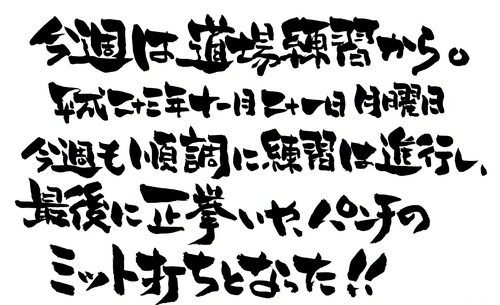 今週は道場練習から。
平成二十三年十一月二十一日 月曜日
今週も順調に練習は進行し、
最後に正拳いや、パンチの
ミット打ちとなった!!